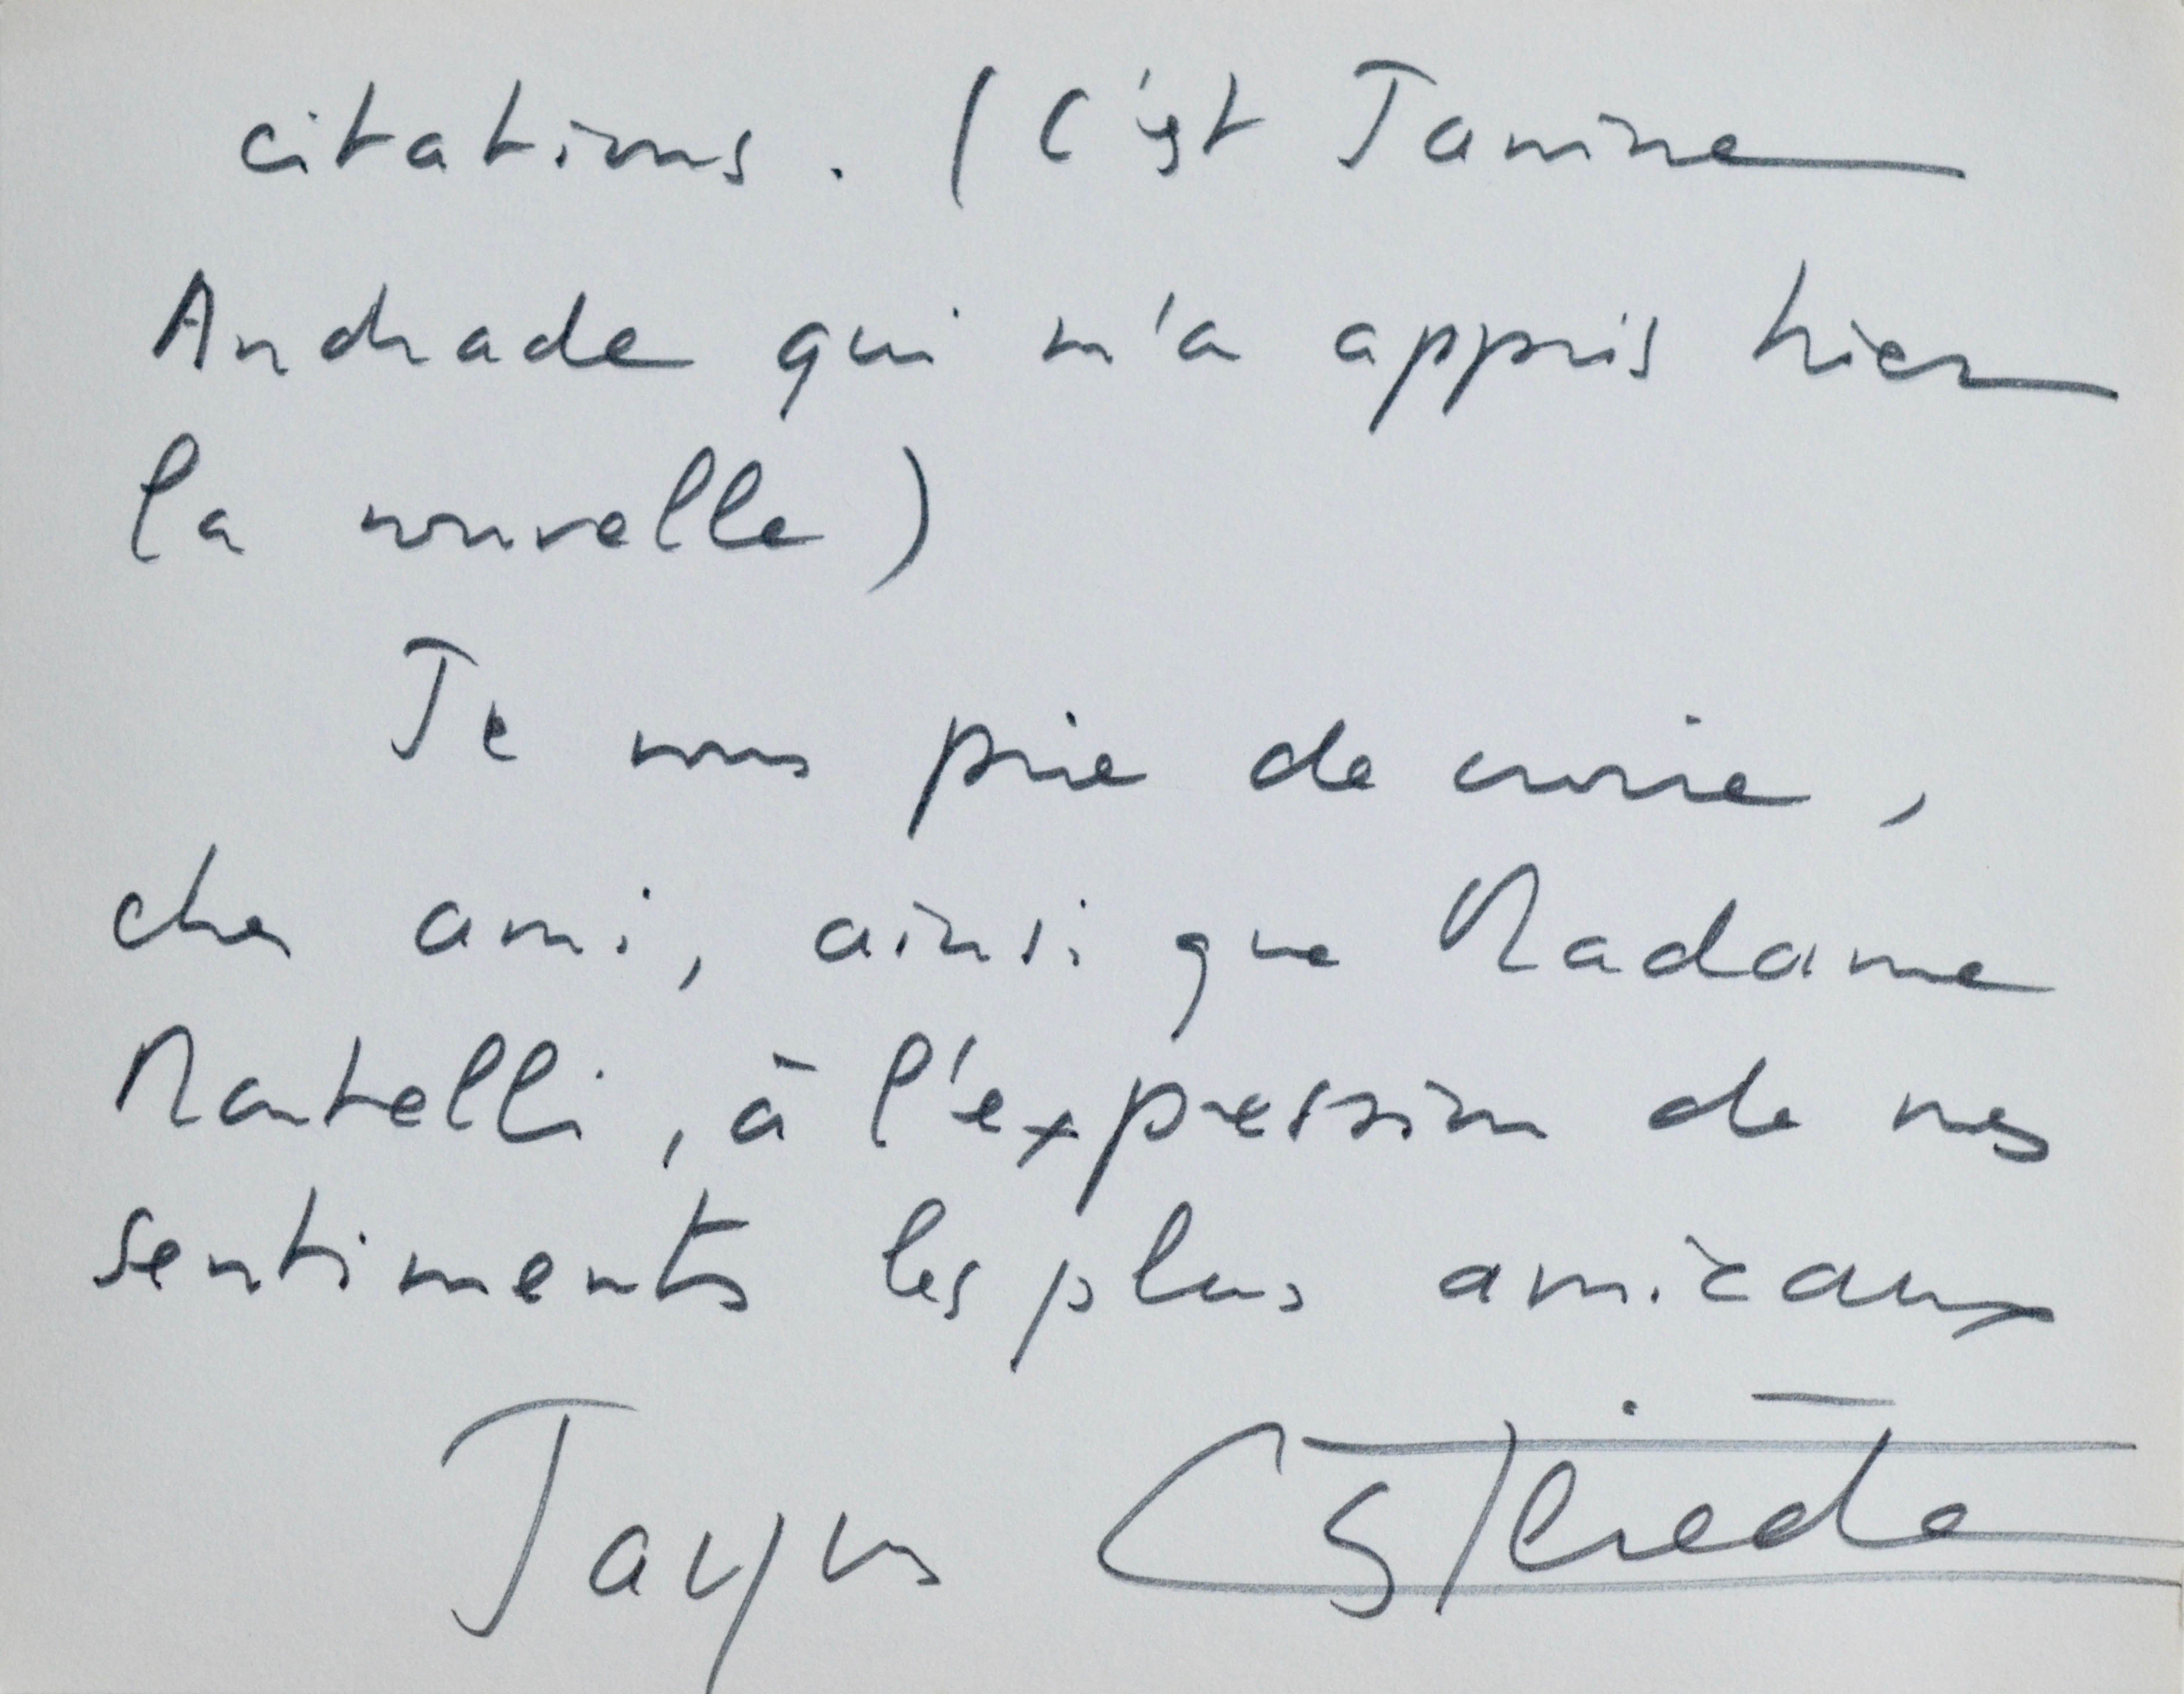 citations. (C'est Janine
Andrade qui m'a appris hier
la nouvelle)
Je vous prie de croire,
cher ami, ainsi que Madame
Martelli, à l'expression de mes
sentiments les plus amicaux
Jacques Castérède